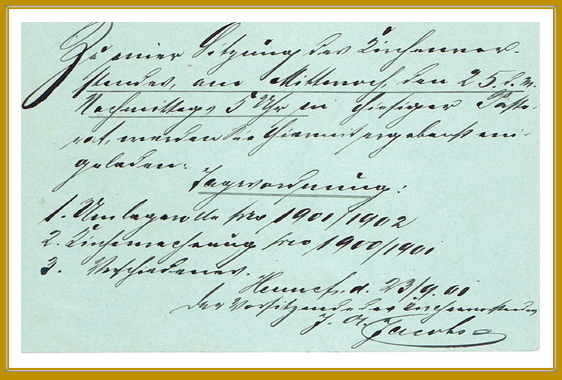 Zu einer Sitzung des Kirchenvor-
standes, am Mittwoch, den 25. d. M.
Nachmittags 5 Uhr im hiesigen Pasto-
rat, werden Sie hiermit ergebenst ein-
geladen.
Tagesordnung:
1. Umlagerolle pro 1901/1902
2. Kirchenrechnung pro 1900/1901
3. Verschiedenes.
Hennef, d. 23/9. 01
Der Vorsitzende des Kirchenvorstandes
Jacobs